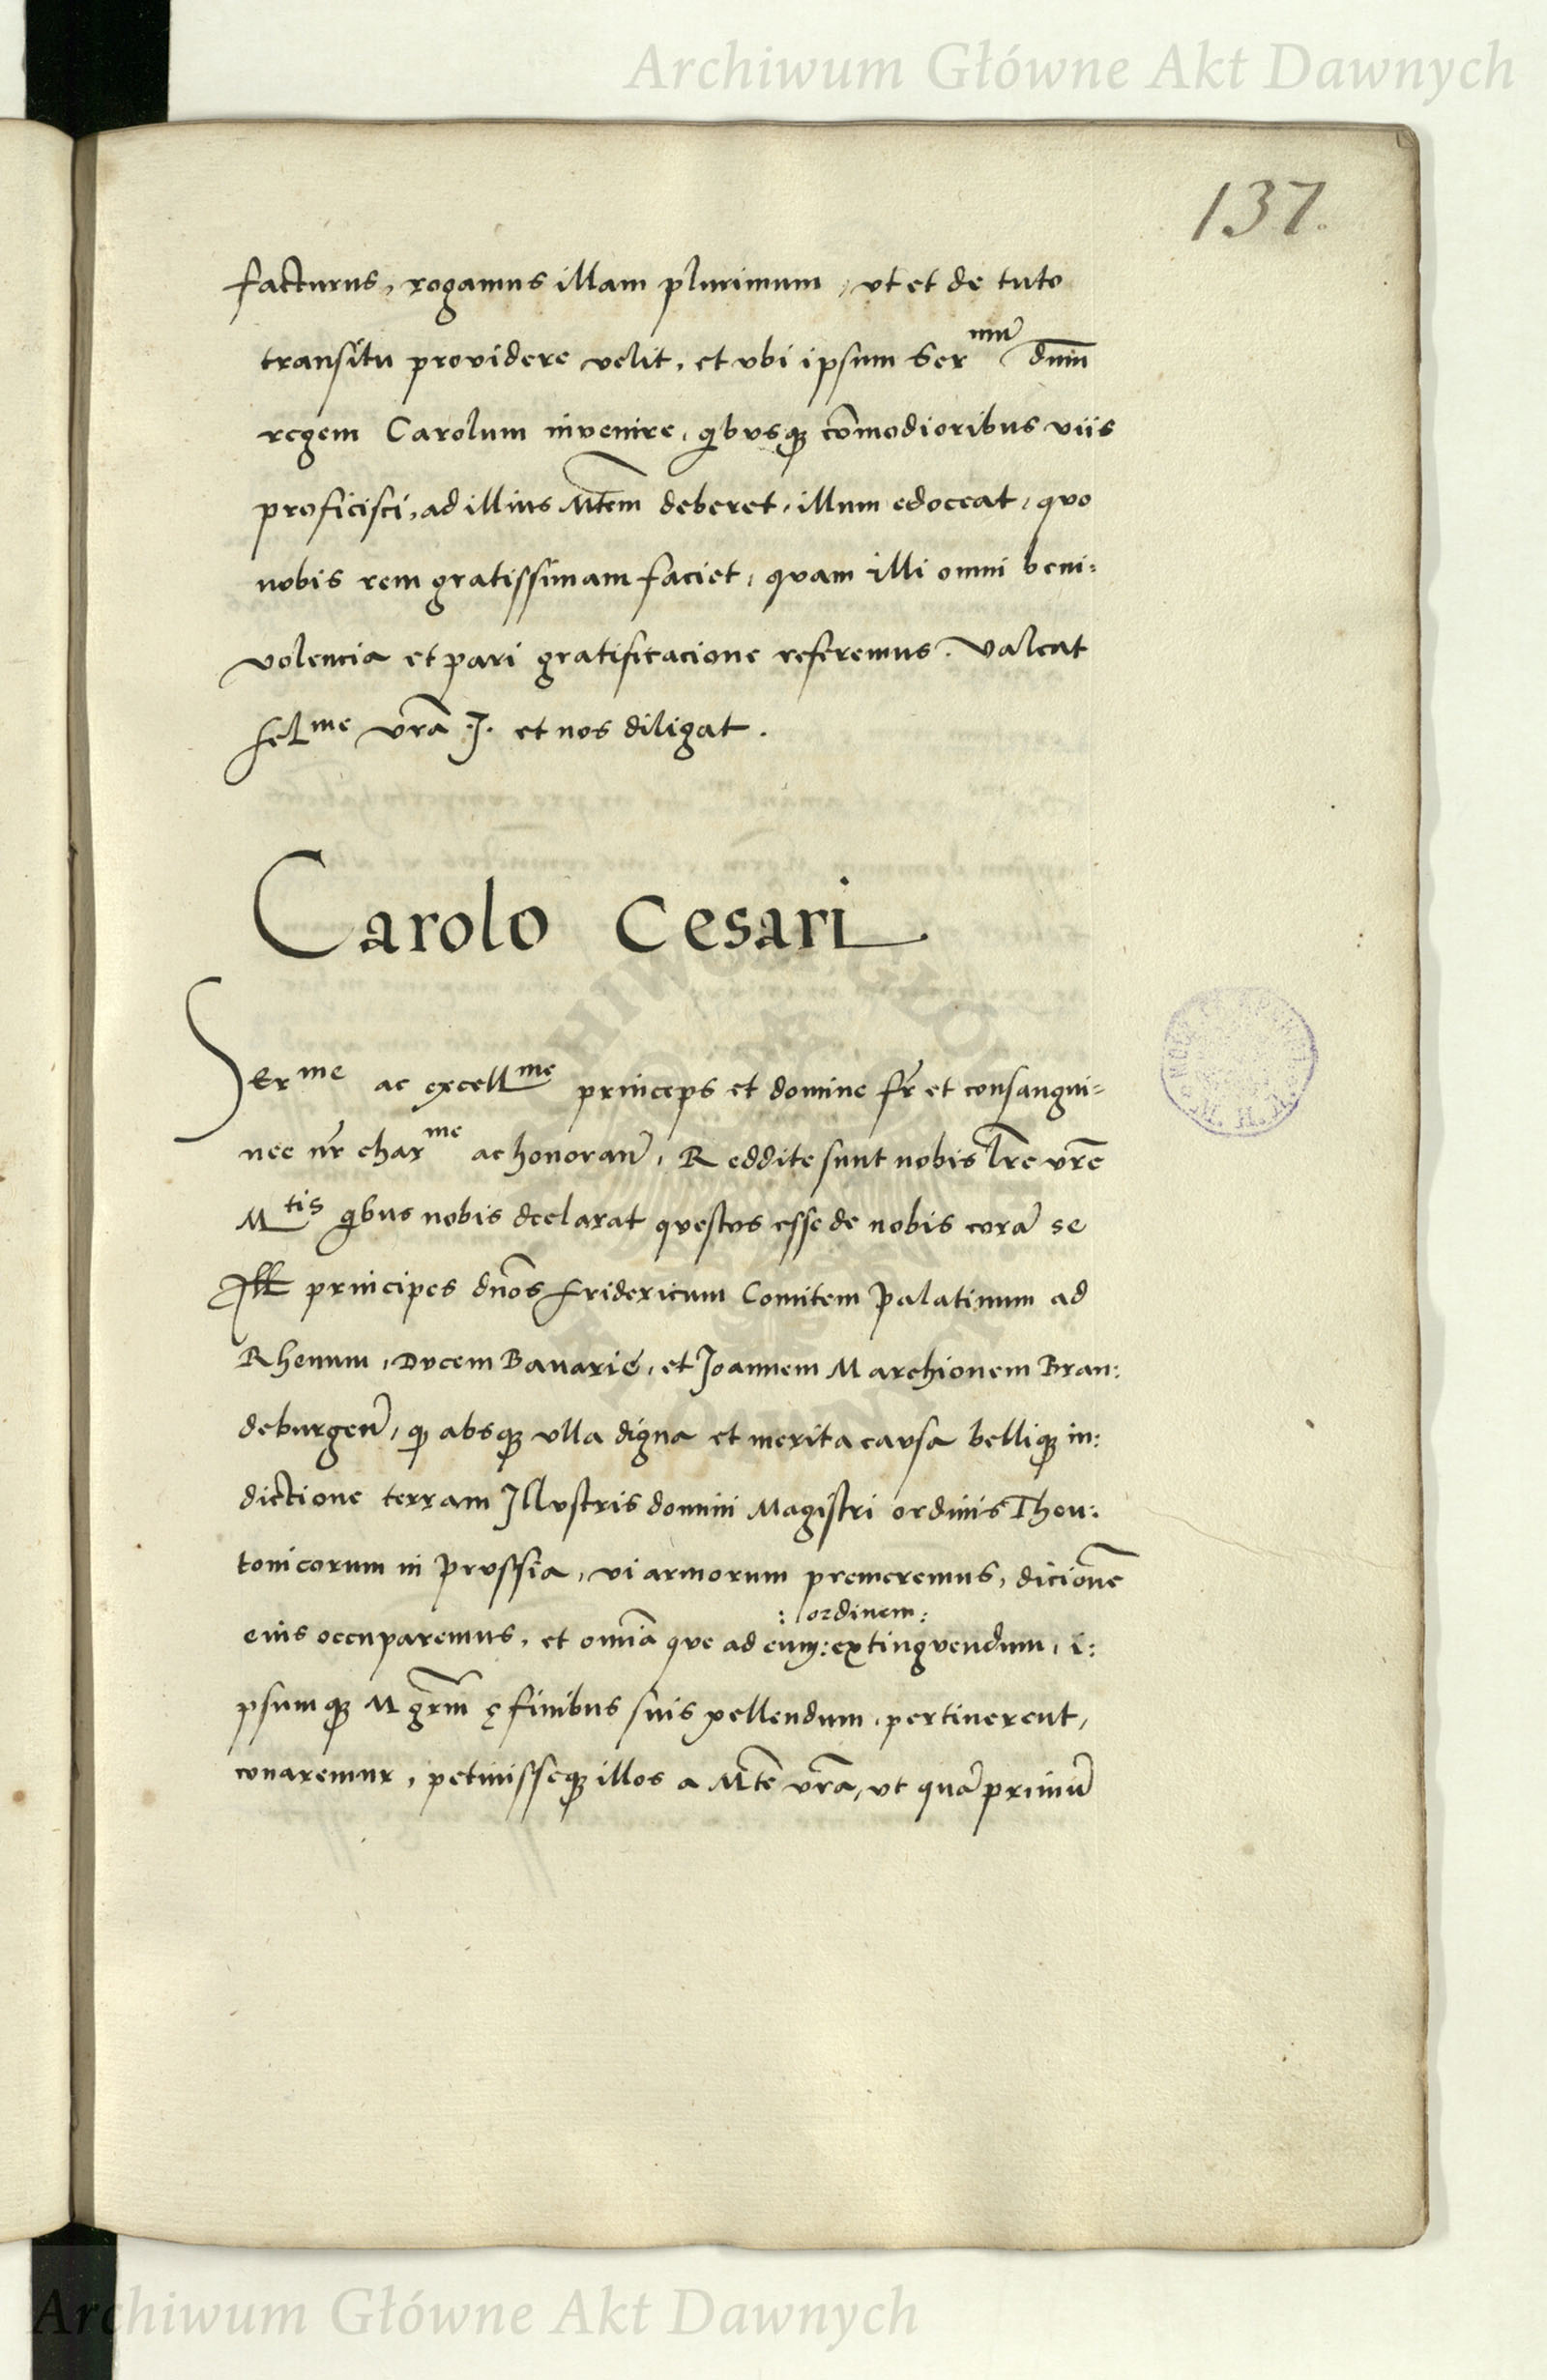 Archiwum Główne Akt Dawnych
137.
facturus, rogamus illam plurimum, vt et de tuto
transitu providere velit, et vbi ipsum Ser mū dnm̄
regem Carolum invenire, qibvsqȝ com̄odioribus viis
proficisci, ad illius Mt̄em deberet, illum edoceat, qvo
nobis rem gratissimam faciet, qvam illi omni beni:
volencia et pari gratificacione referemus. Valeat
fel me vrā .I. et nos diligat.
Carolo Cesari
Ser me ac excell me princeps et domine fr̄ et consangui=
nee nr̄ char me ac honoran̄, Reddite sunt nobis lr̄e vr̄e
M tis qibus nobis declarat qvestvs esse de nobis corā se
Ill principes dn̄os fridericum Comitem Palatinum ad
Rhenum, Dvcem Bavarię, et Joannem Marchionem Bran:
deburgen̄, qȝ absqȝ vlla digna et merita cavsa belliqȝ in:
dictione terram Jllvstris domini Magistri ordinis Theu:
tonicorum in Prvssia, vi armorum premeremus, dicionē
eius occuparemus, et omīa qve ad eum: extingvendum, i:
: ordinem:
psumqȝ Mgrm̄ ę finibus suis pellendum, pertinerent,
conaremur, petiuisseqȝ illos a Mt̄e vrā, vt quā primū
Archiwum Główne Akt Dawnych